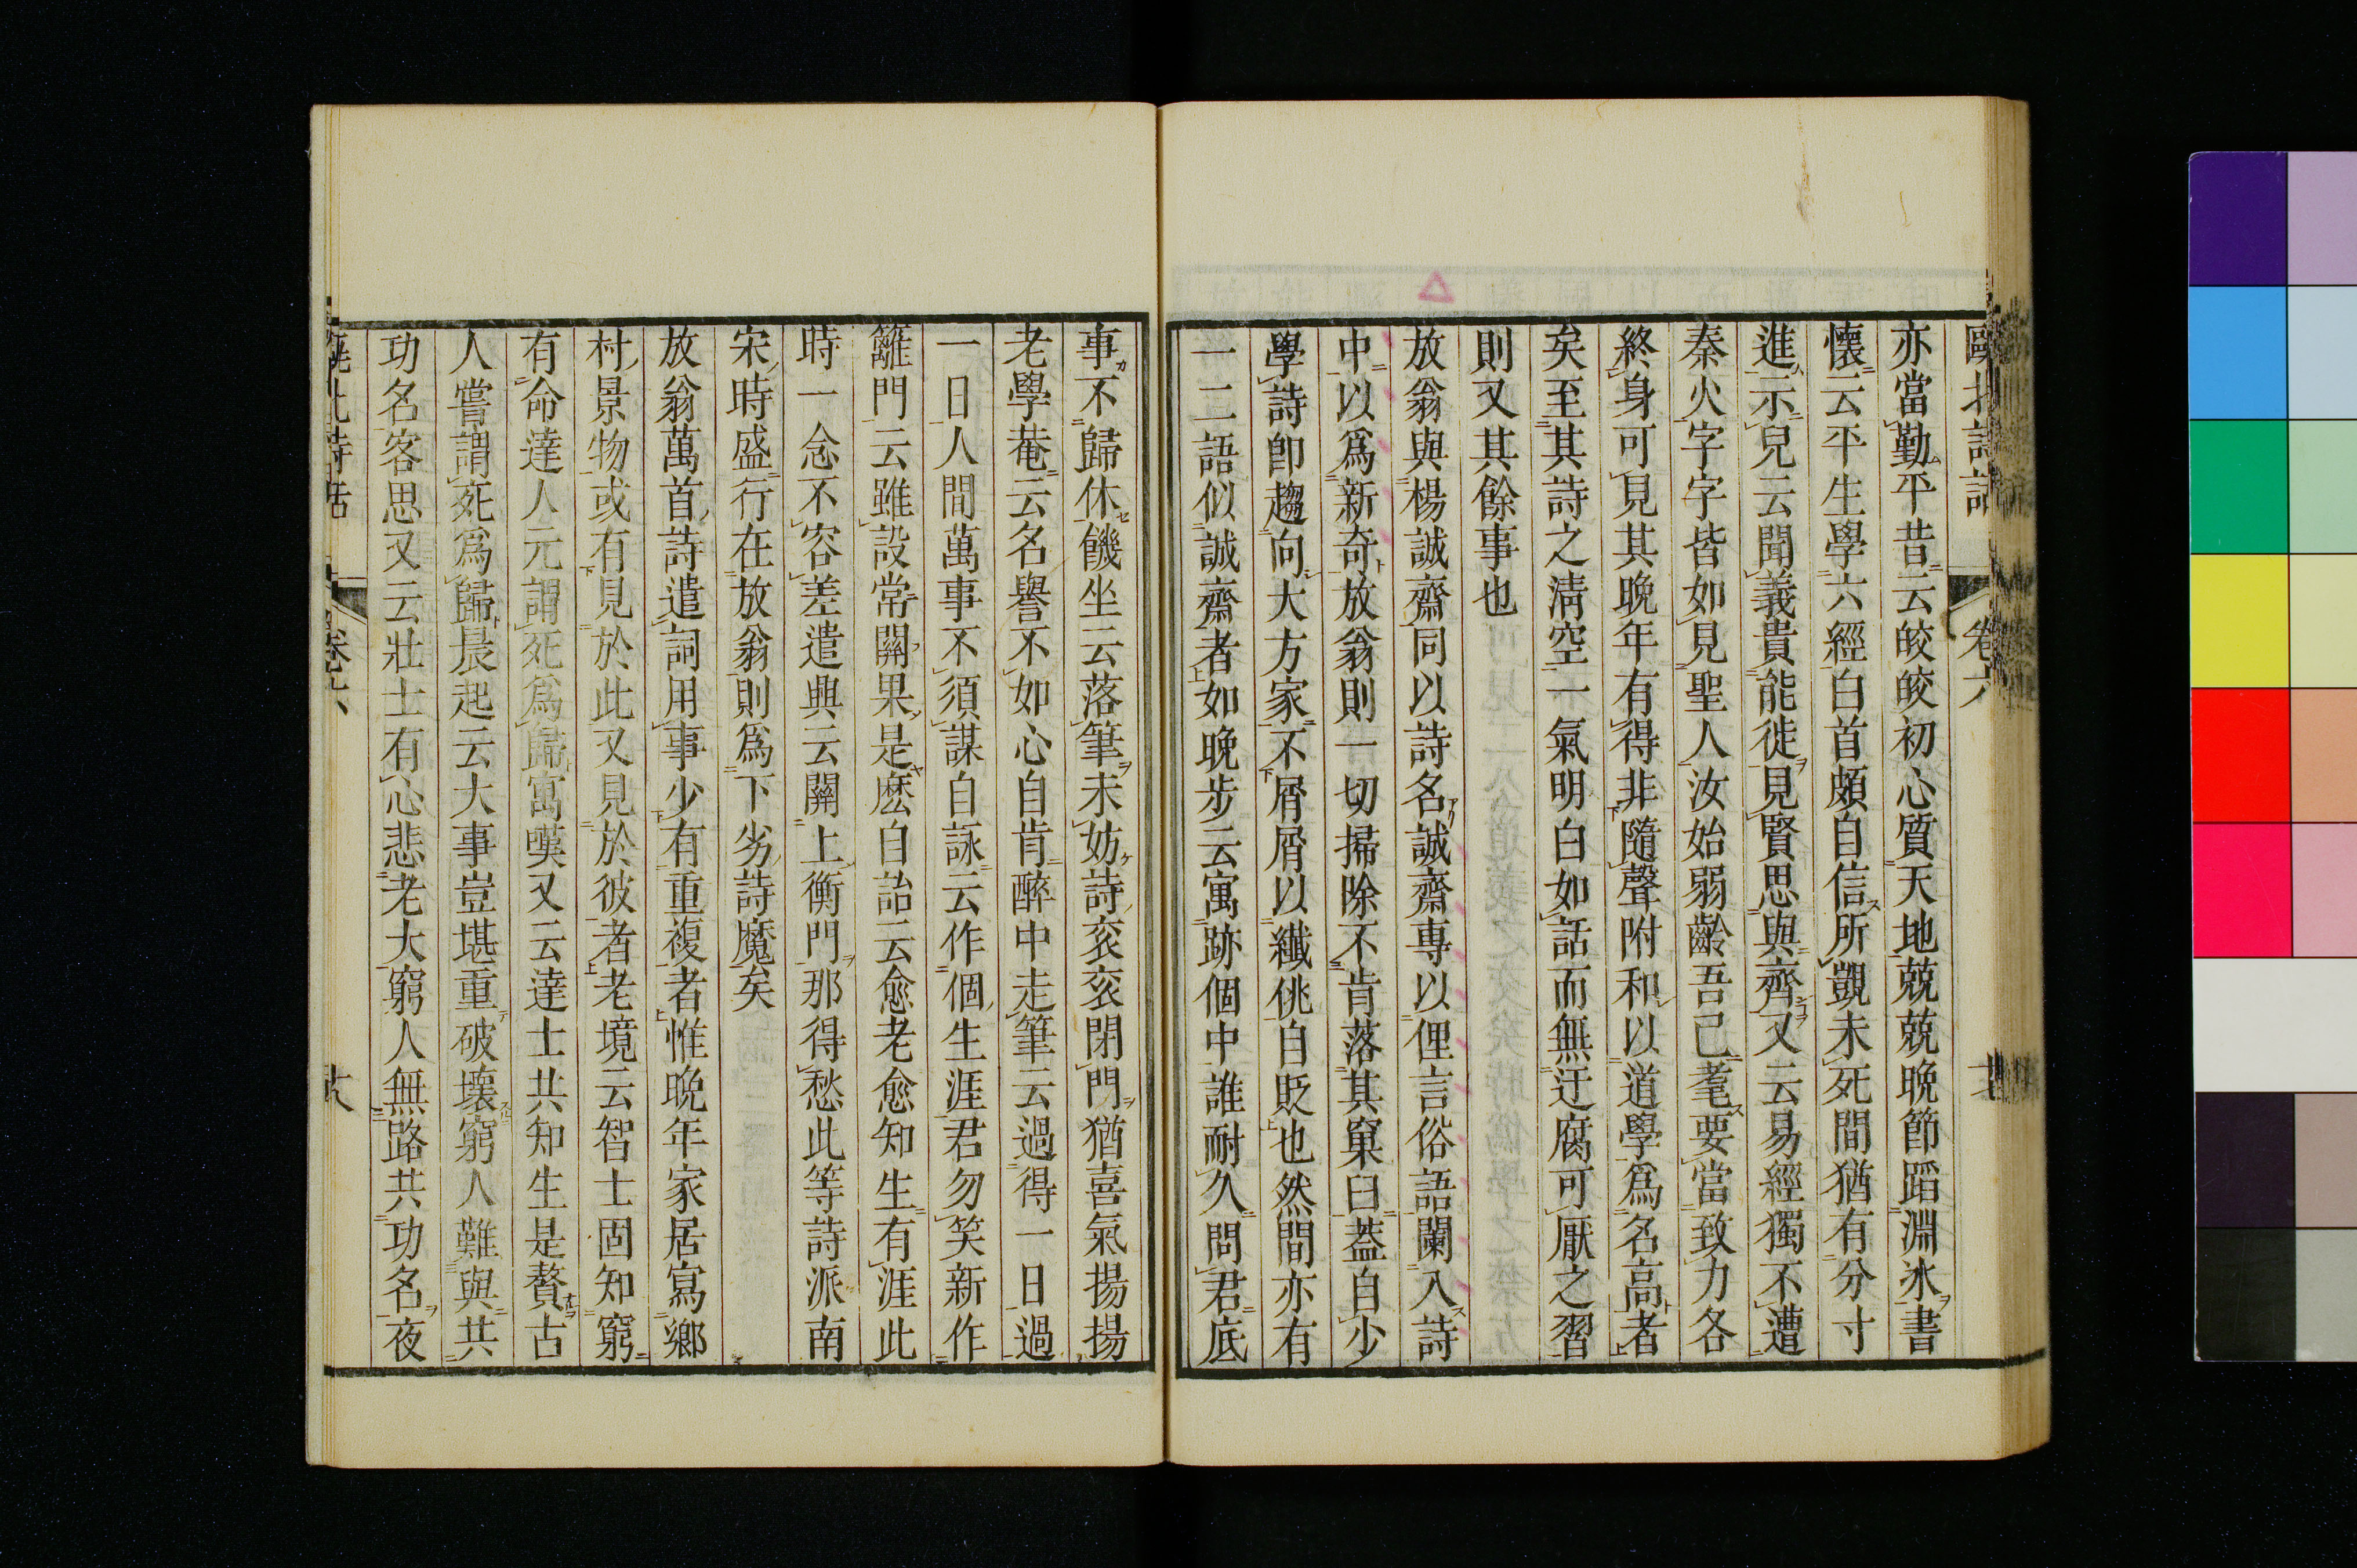 亦當勤平昔云皎皎初心質天地兢兢晚節蹈淵冰書
懷云平生學六經白首頗自信所覬未死間猶有分寸
進示兒云聞義貴能徙見賢思與齊又云易經獨不遭
秦火字字皆如見聖人汝始弱齡吾已耄要當致力各
終身可見其晚年有得非隨聲附和以道學爲名高者
矣至其詩之清空一氣明白如話而無迂腐可厭之習
則又其餘事也
放翁與楊誠齋同以詩名誠齋專以俚言俗語闌入詩
中以爲新奇放翁則一切掃除不肯落其窠臼蓋自少
學詩卽趨向大方家不屑屑以纖佻自貶也然間亦有
一二語似誠齋者如晚步云寓跡個中誰耐久問君底
事不歸休饑坐云落筆未妨詩袞袞閉門猶喜氣揚揚
老學菴云名譽不如心自肯醉中走筆云過得一日過
一日人間萬事不須謀自詠云作個生涯君勿笑新作
籬門云雖設常關果是麽自詒云愈老愈知生有涯此
時一念不容差遣興云關上衡門那得愁此等詩派南
宋時盛行在放翁則爲下劣詩魔矣
放翁萬首詩遣詞用事少有重複者惟晚年家居寫鄉
村景物或有見於此又見於彼者老境云智士固知窮
有命達人元謂死爲歸寓嘆又云達士共知生是贅古
人嘗謂死爲歸晨起云大事豈堪重破壞窮人難與共
功名客思又云壯士有心悲老大窮人無路共功名夜
甌北詩話 卷六 十八